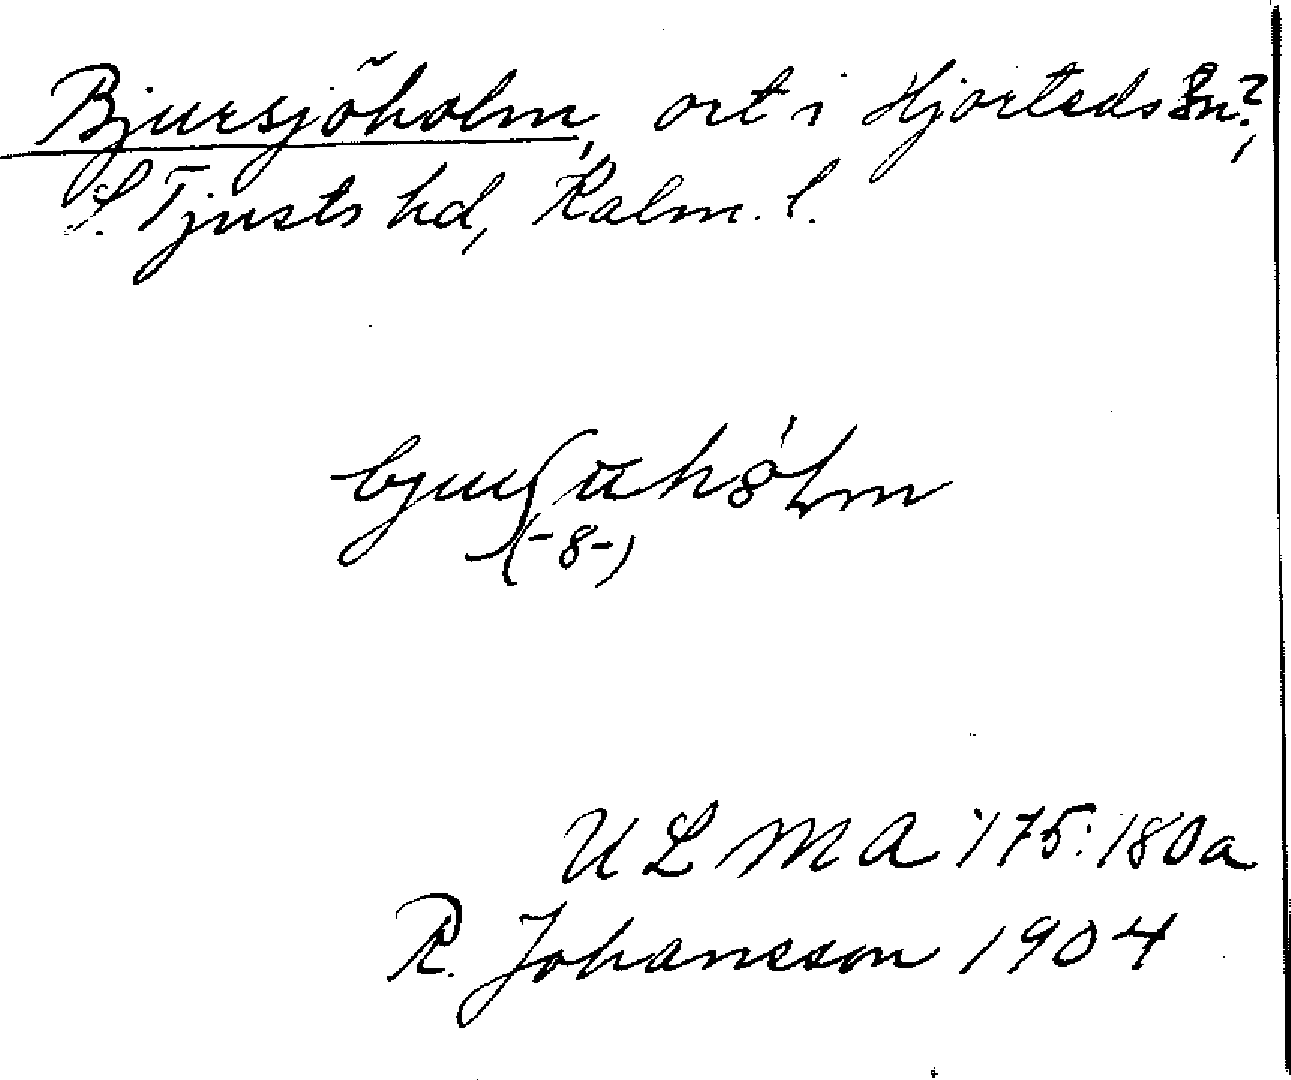 Bjursjöholm, ort i Hjorteds sn?,
S. Tjusts hd, Kalm. l.
(-8-)
ULMA 175:180a
R. Johansson 1904